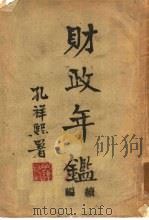 財政年鑑
續編
孔祥熙署